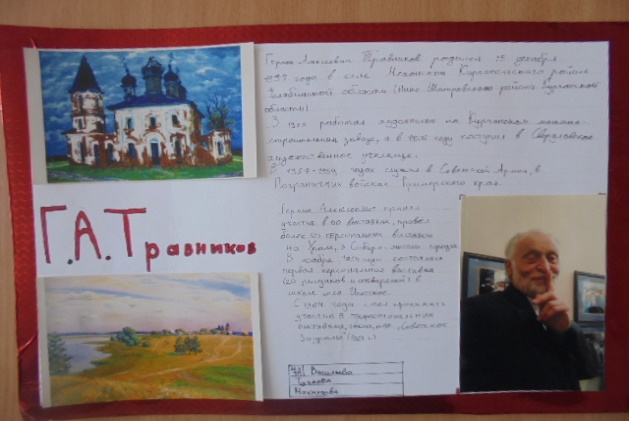 Герман Алексеевич Травников родился 15 декабря
1937 года в селе Мехонском Каргапольского района
Челябинской области (Ныне Шатровского района Курганской
области)
В работал художником на Курганском машино-
строительном заводе, а в 1956 году поступил в Свердловское
художественное училище.
В 1957-1959 годах служил в Советской Армии, в
Пограничных войсках Приморского края.
Г.А. Травников
Герман Алексеевич принял
участие в 60 выставках, провел
более 50 персональных выставок
на Урале, в Сибири, многих городах
В ноябре года состоялась
первая персональная выставка
(20 рисунков и акварелей) в
школе села
С 1964 года стал принимать
участие в
выставках, "Советское
Зауралье"
Васильева